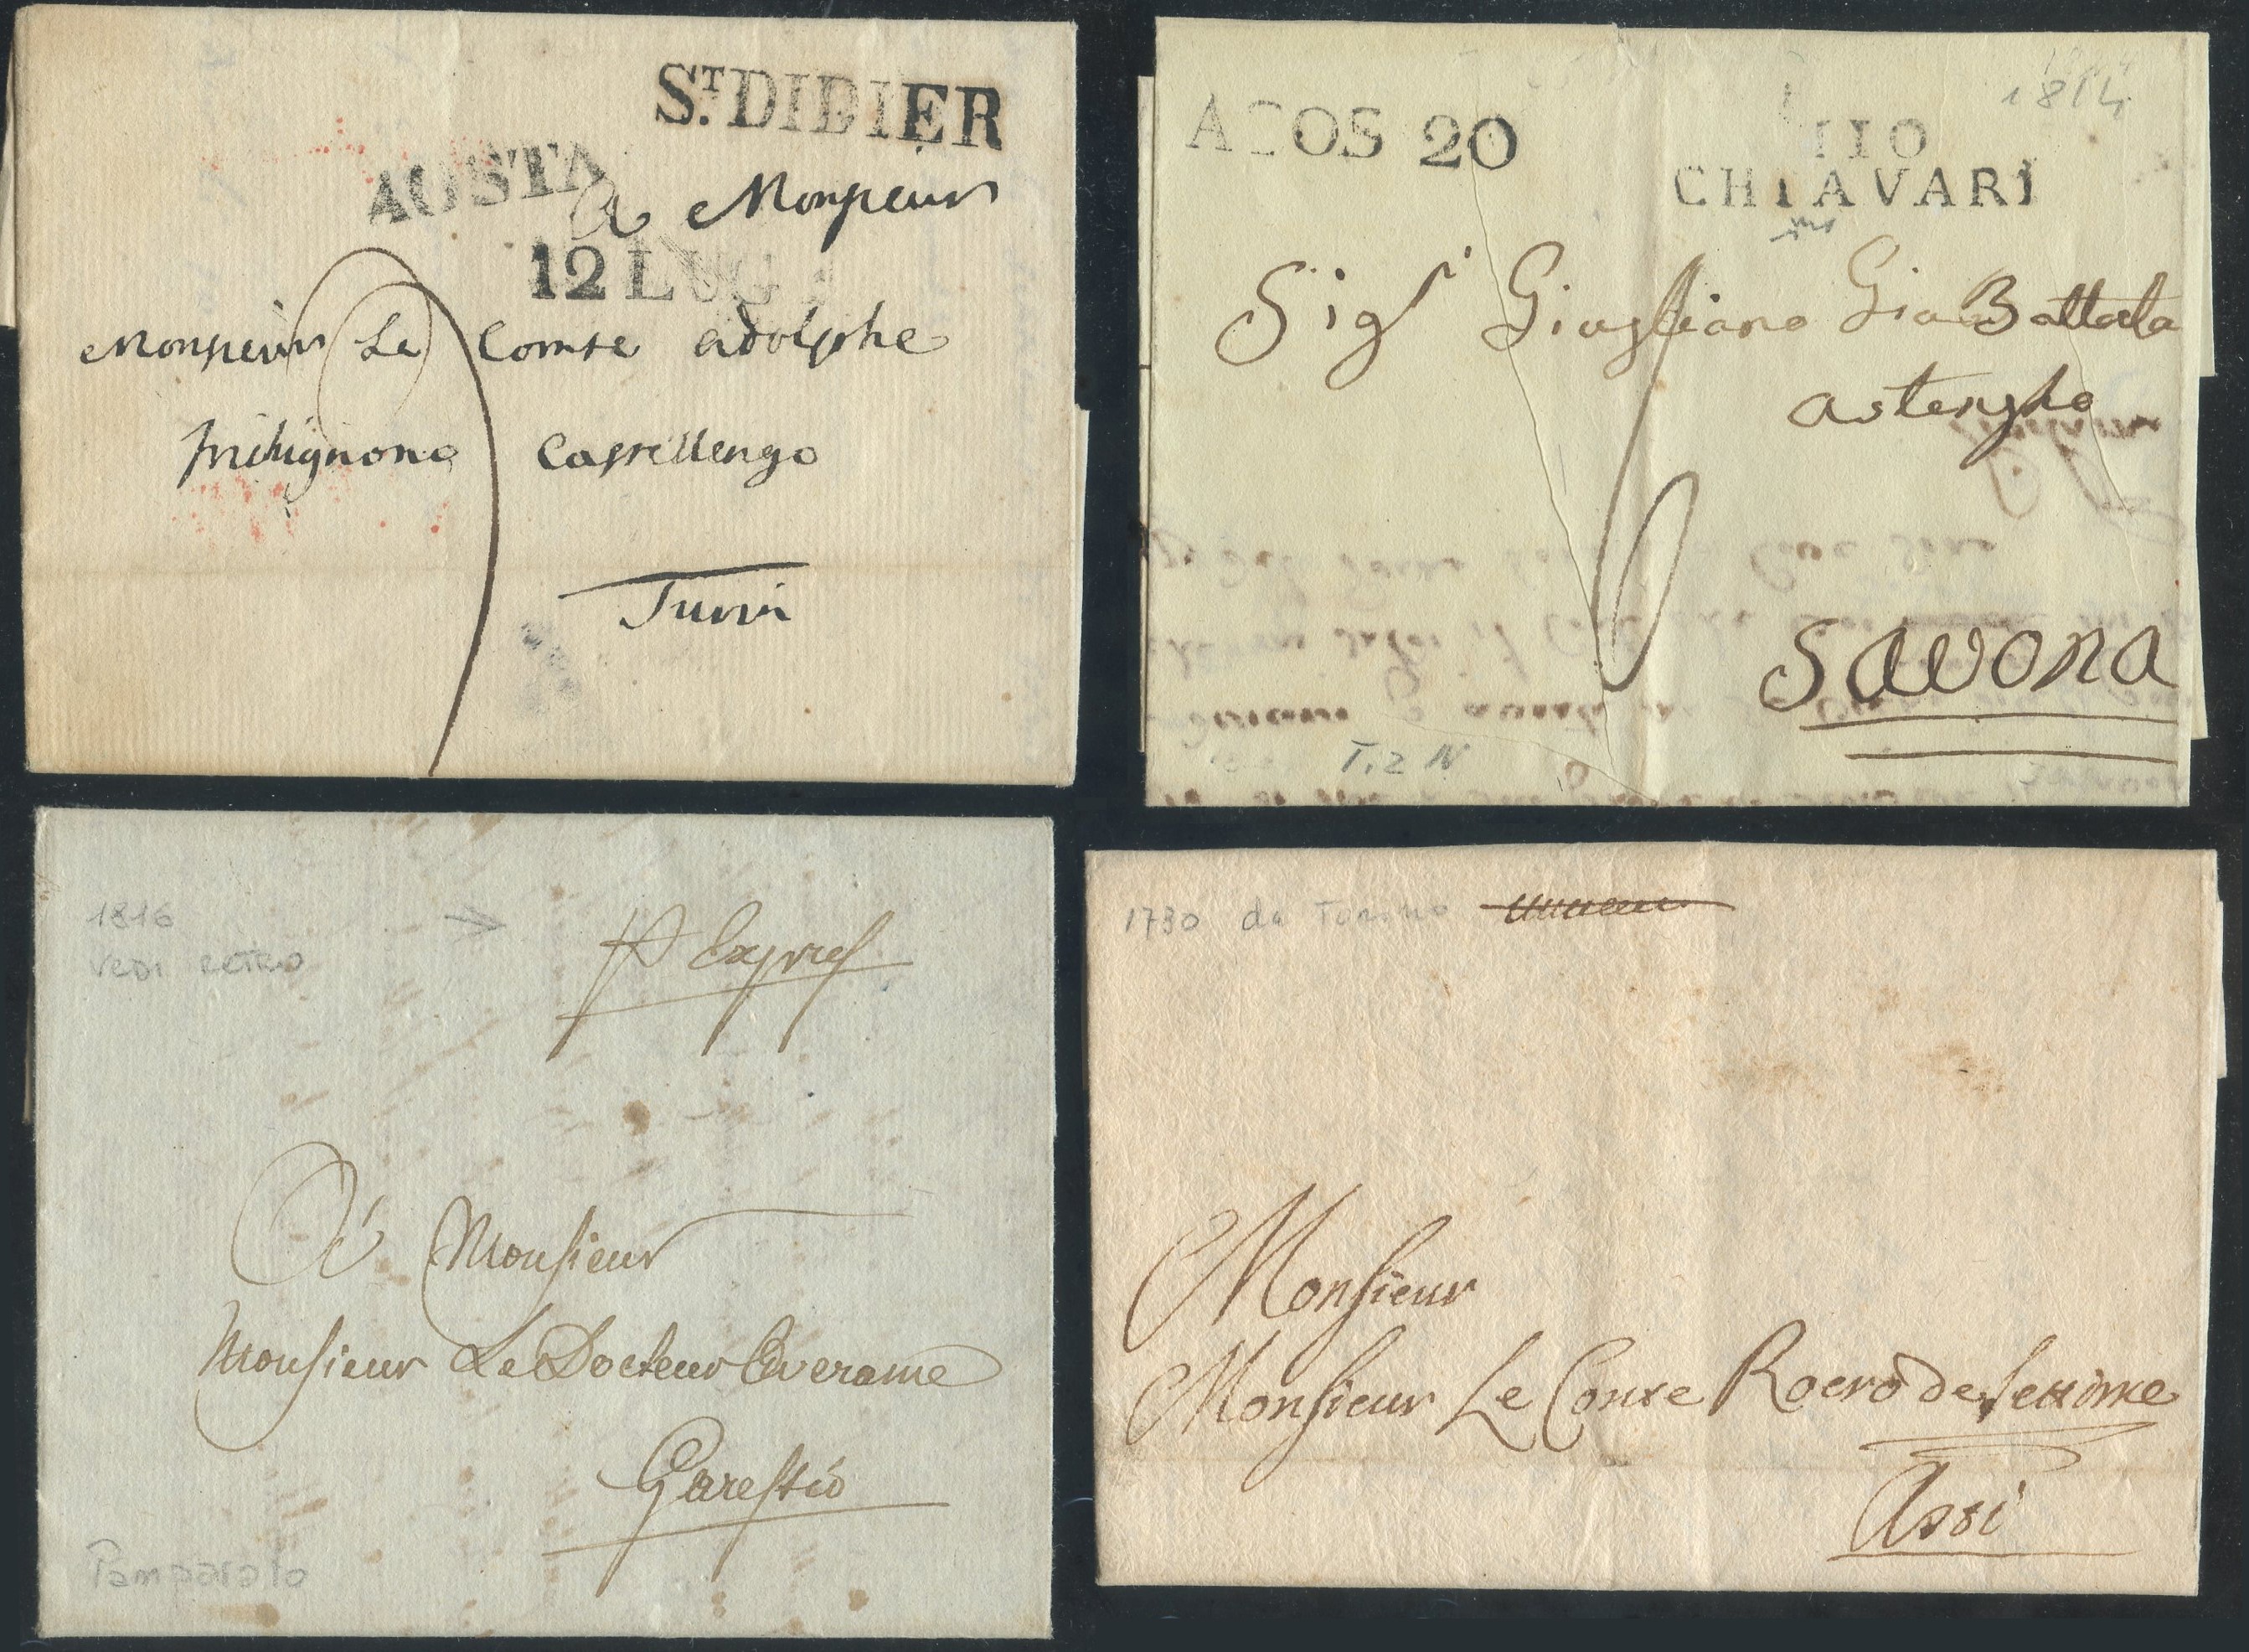 S.T DIDIER
AOSTA
A Monsieur
12 LUG
Monsieur Le Comte Adolphe
Castellengo
Turin
1814
AGOS 20
110
CHIAVARI
Sig.r Giugliano Gia Battata
Astengho
Savona
T. 2 N
1816
VEDI RETRO
P Expres
A Monsieur
Monsieur Le Docteur Averame
Garessio
Pamparato
1730 da Torino
Monsieur
Monsieur Le Conte Roero de Settime
Asti